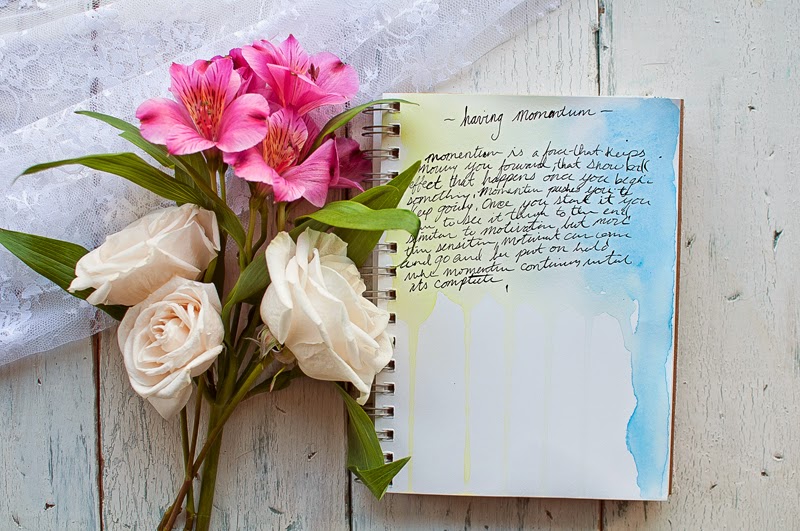 ~ having momentum ~
momentum is a force that keeps
moving you forward, that snow ball
effect that happens once you begin
something. Momentum pushes you to
keep going. Once you start it you
to see it through to the end
similar to motivation, but more
time sensitive. Motivation can come
and go and be put on hold
while momentum continues until
its complete.